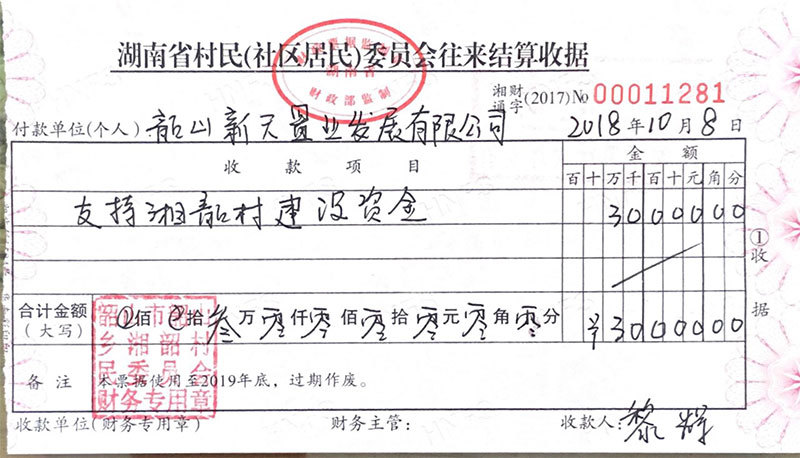 湖南省村民(社区居民)委员会往来结算收据
财政票据监制
湖南省
财政部监制
湘财通字(2017)№ 00011281
付款单位(个人) 韶山新天置业发展有限公司 2018年10月8日
收款项目 金额
百十万千百十元角分
支持湘韶村建设资金 3000000
①收据
合计金额(大写) ⊗佰⊗拾叁万零仟零佰零拾零元零角零分 ¥3000000
韶山市韶山
乡湘韶村
民委员会
财务专用章
备注 本票据使用至2019年底，过期作废。
收款单位(财务专用章) 财务主管： 收款人：黎辉